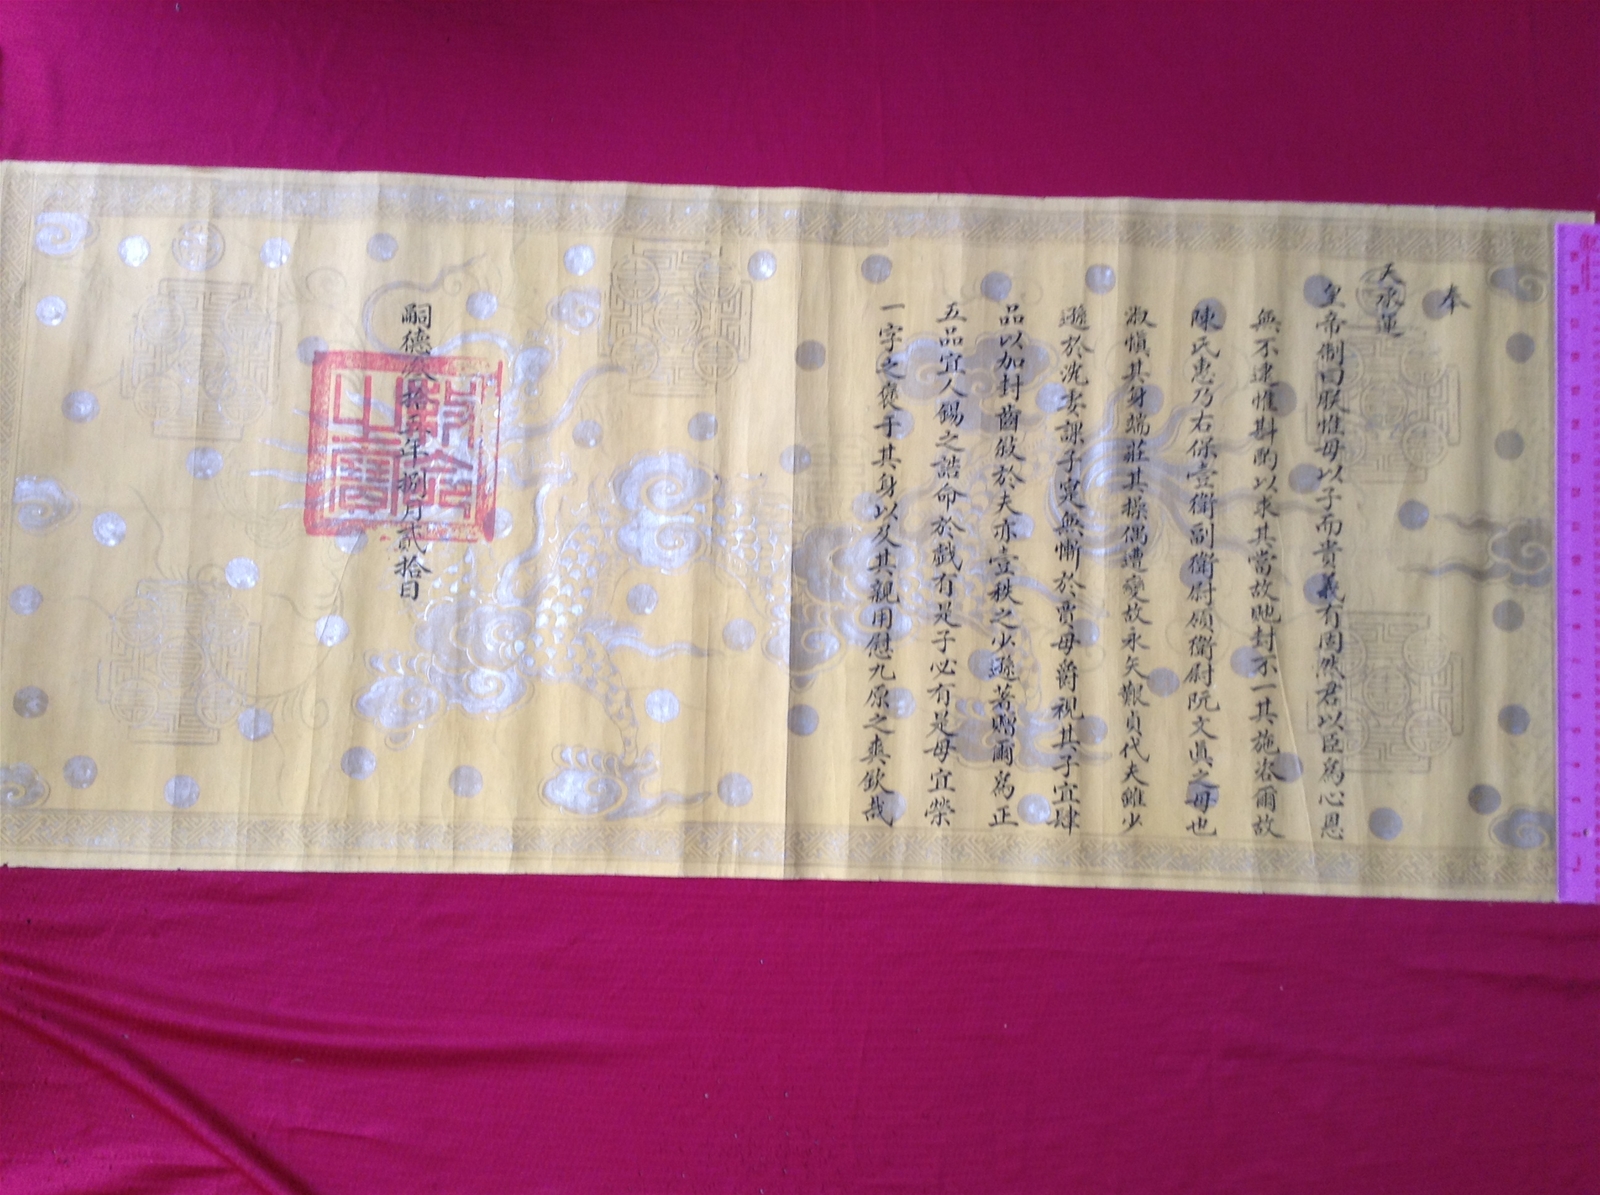 奉
天承運
皇帝制曰朕惟母以子而貴義有固然君以臣爲心恩
無不逮惟斟酌以求其當故貤封不一其施咨爾故
陳氏惠乃右保壹衛副衛尉領衛尉阮文眞之母也
淑慎其身端莊其操偶遭變故永矢艱貞代夫雖少
遜於沈妻課子寔無慚於賈母爵視其子宜肆
品以加封齒敘於夫亦壹秩之少遜著贈爾爲正
五品宜人錫之誥命於戲有是子必有是母宜榮
一字之褒于其身以及其親用慰九原之爽欽哉
嗣德叁拾五年捌月貳拾日
敕命之寶